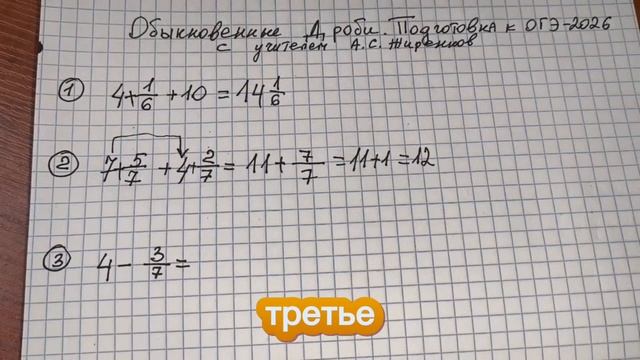 Обыкновенные Дроби. Подготовка к ОГЭ-2026
с учителем А.С. Жиренков
① 4+1/6 +10 = 14 1/6
② 7+5/7 +4+2/7 = 11+7/7 = 11+1 = 12
③ 4 - 3/7 =
третье